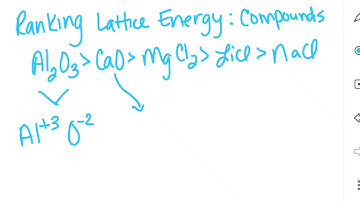 Ranking Lattice Energy: Compounds
Al₂O₃ > CaO > MgCl₂ > LiCl > NaCl
Al⁺³ O⁻²